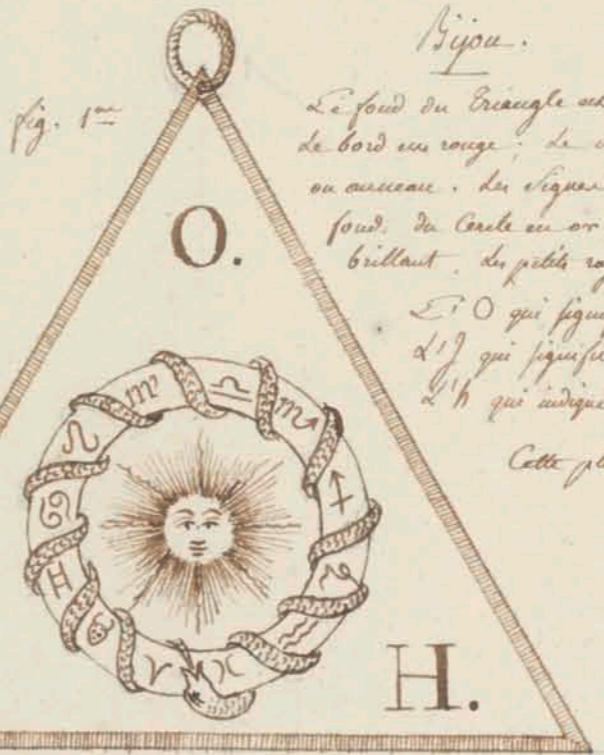 Bijou.
fig. 1re
Le fond du Triangle
Le bord en rouge. Le
ou anneau. Les Signes
fond du Cercle en or
brillant. Les petits
L'O qui signi
L'J qui signifi
L'h qui indique
Cette pl
O.
♍ ♎ ♏
♌ ♐
♋ ♑
♊ ♒
♉ ♈ ♓
H.